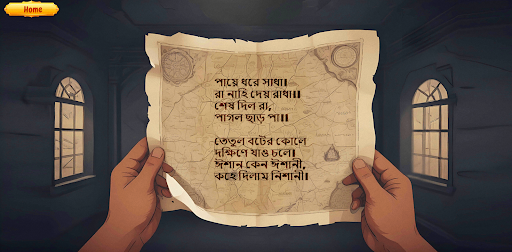 Home
পায়ে ধরে সাধা।
রা নাহি দেয় রাধা।।
শেষ দিল রা,
পাগল ছাড় পা।।
তেতুল বটের কোলে
দক্ষিণে যাও চলে।
ঈশান কেন ঈশানী,
কহে দিলাম নিশানী।